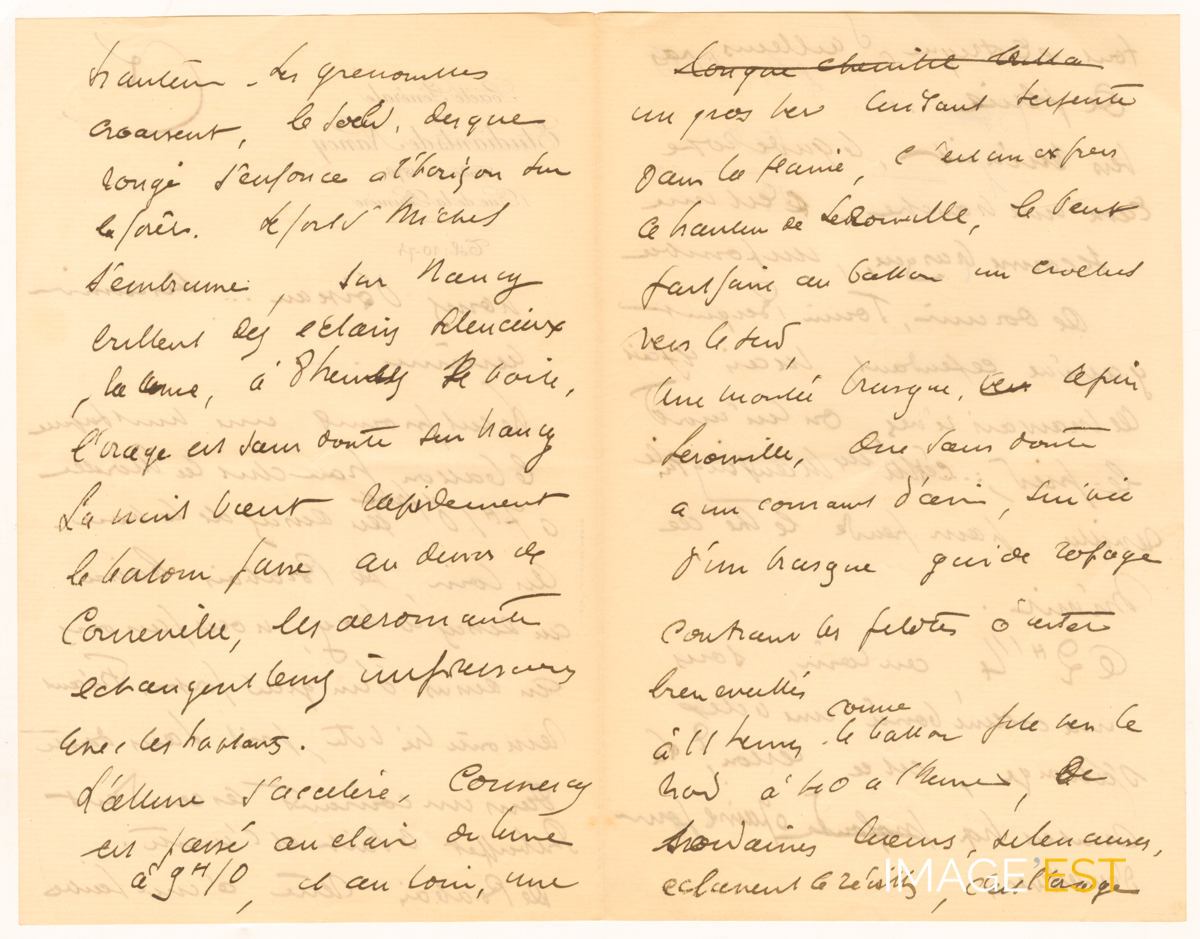 hauteur - Les grenouilles
croassent, le soleil, disque
rouge s'enfonce a l'horizon sur
la forêt. Le fort St Michel
s'embrume, sur Nancy
brillent des eclairs silencieux
, la lune, à 8 heures se voile,
l'orage est sans doute sur Nancy
La nuit vient rapidement
le ballon passe au dessus de
Corneville, les aeronautes
echangent leurs impressions
avec les habitants.
L'allure s'accelère, Commercy
est passé au clair de lune
à 9H10, et au loin, une
longue chenille
un gros ver luisant serpente
dans la plaine, c'est un express
a hauteur de Lerouville, le vent
fait faire au ballon un crochet
vers le sud,
Une montée brusque, depuis
Lerouville, due sans doute
a un courant d'air, suivie
d'un brusque guideropage
contraint les pilotes à rester
bien eveillés
à 11 heures le ballon file vers le
Nord à 40 a l'heure, de
soudaines lueurs, silencieuses,
eclairent le réseau, c'est l'orage
IMAGE'EST